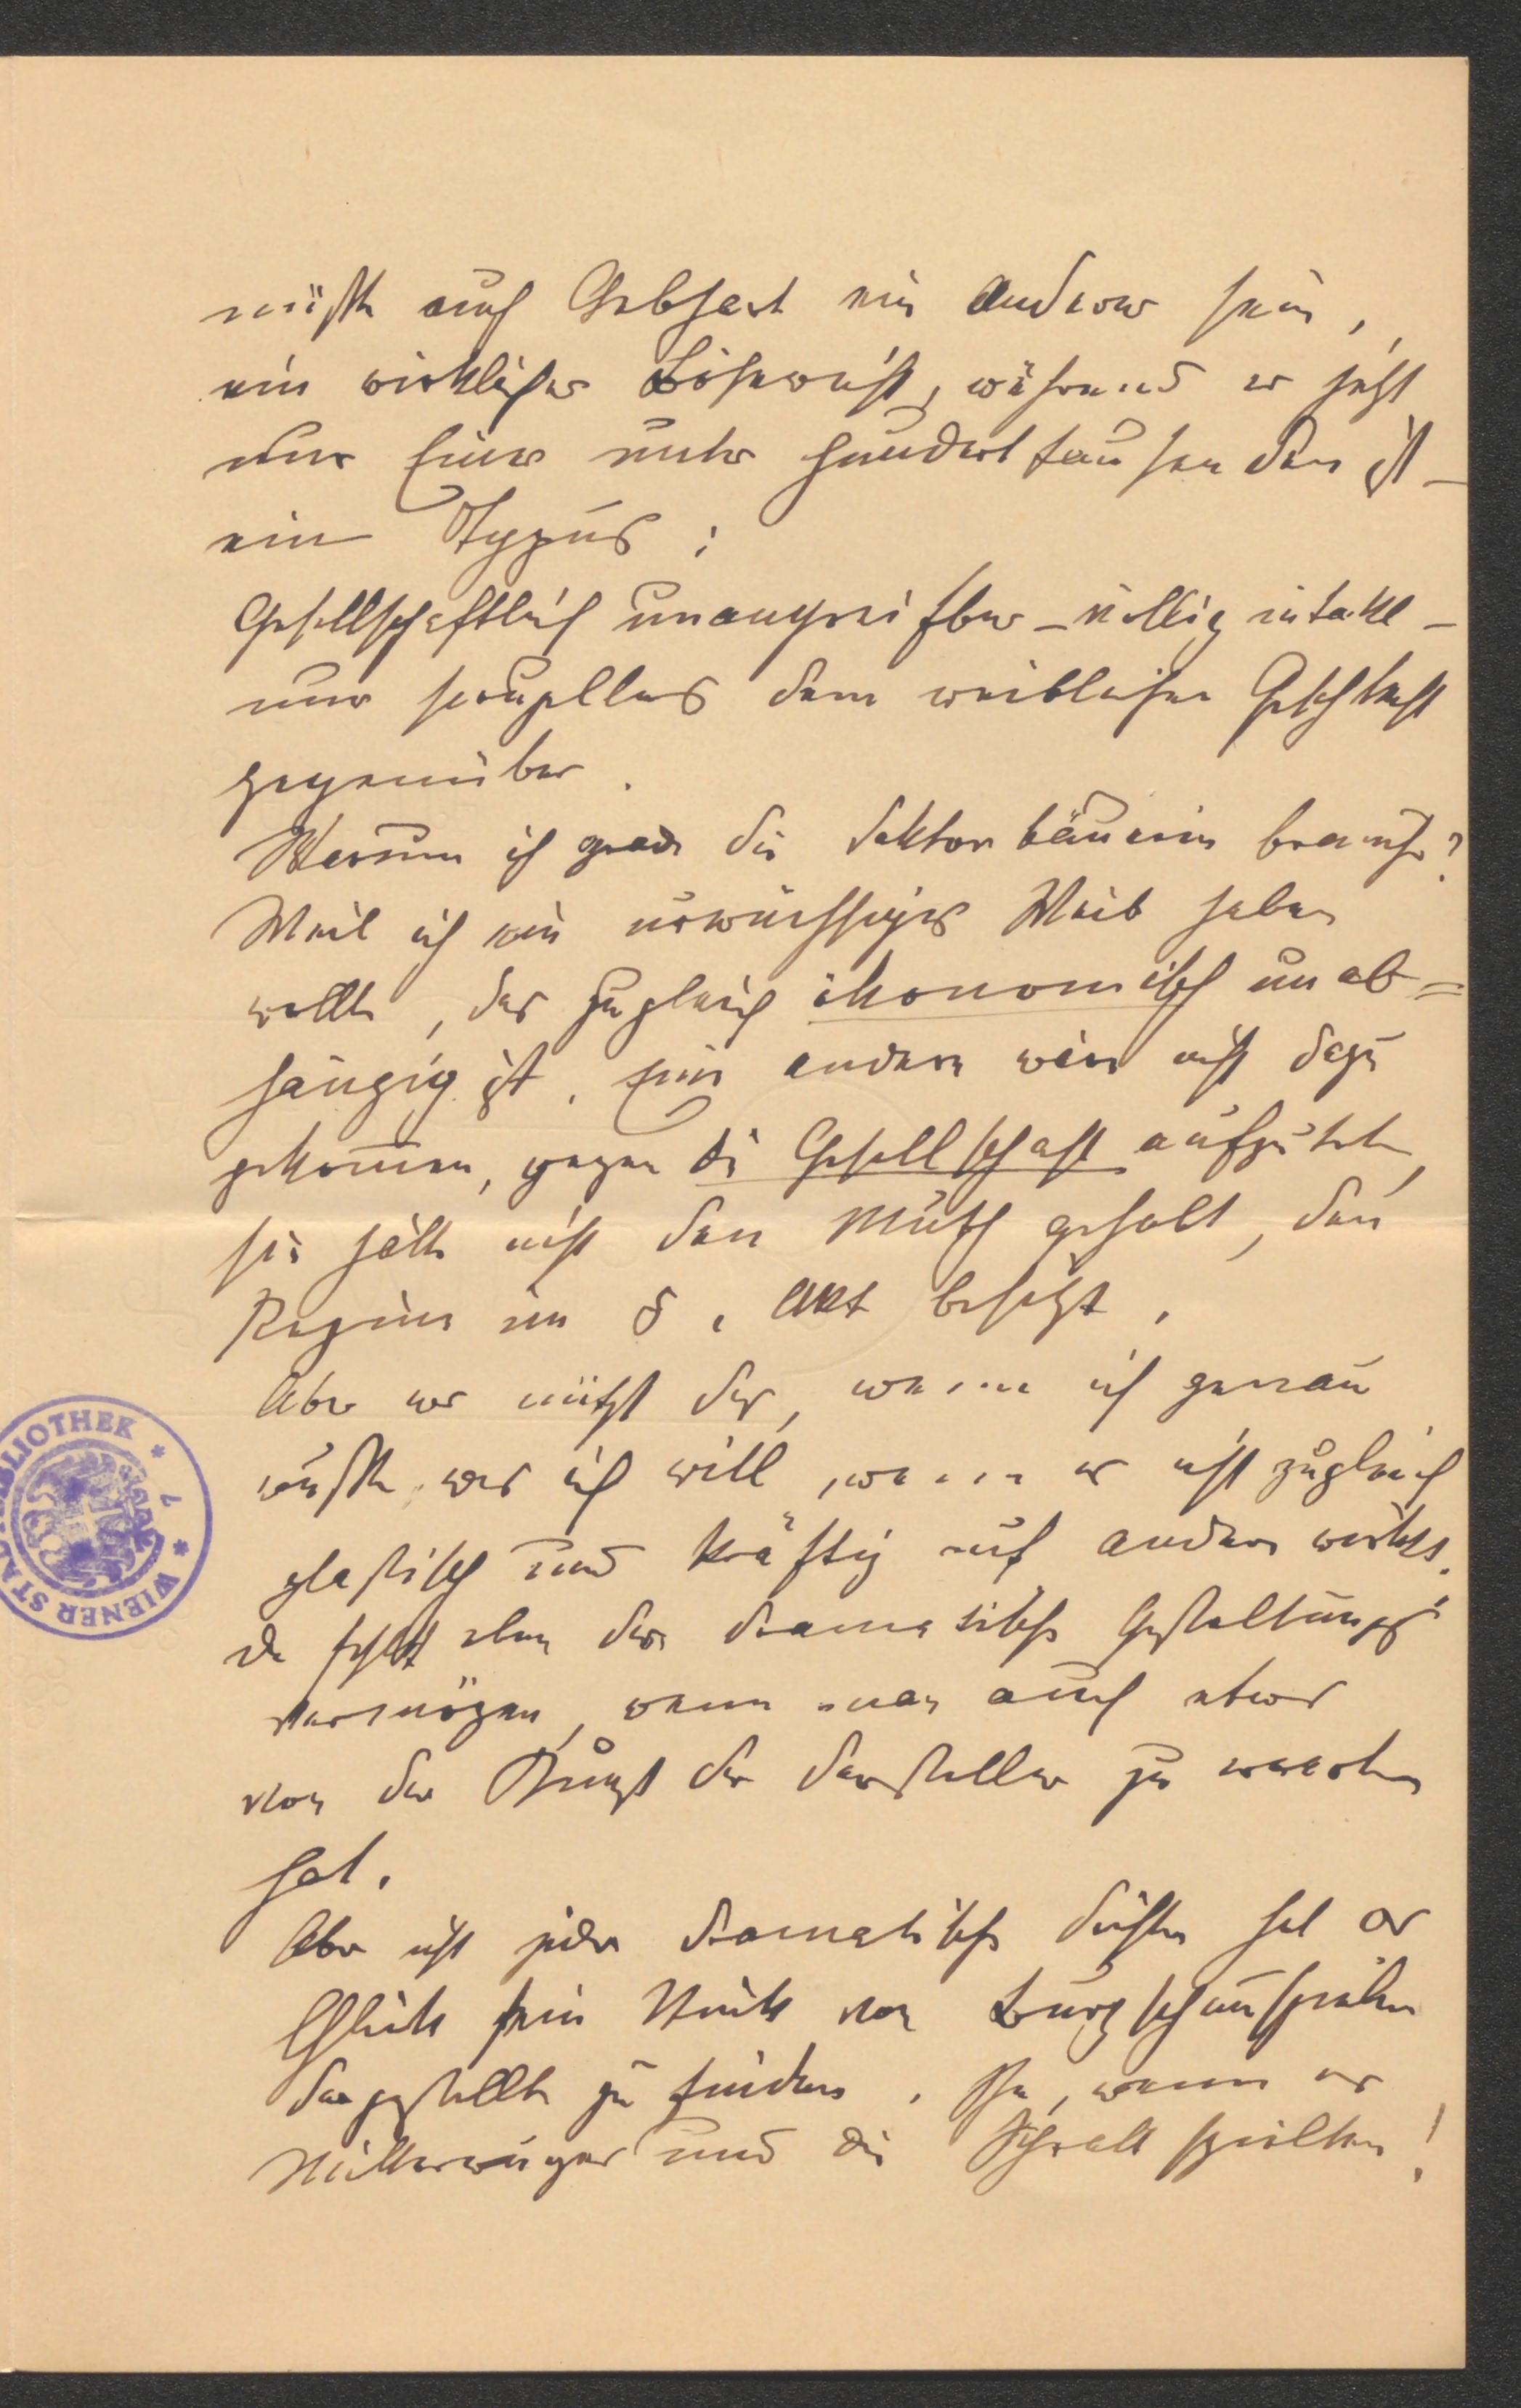 müßte auch Gebhart ein Anderer sein,
ein wirklicher Bösewicht, während er jetzt
nur Einer unter Hunderttausenden ist –
ein Typus:
Gesellschaftlich unangreifbar – völlig intakt –
nur scrupellos dem weiblichen Geschlecht
gegenüber.
Warum ich grade die Doktorbäuerin brauche?
Weil ich ein urwüchsiges Weib haben
wollte, das zugleich ökonomisch unab=
hängig ist. Eine andere wäre nicht dazu
gekommen, gegen die Gesellschaft aufzutreten,
sie hätte nicht den Muth gehabt, den
Regine im 5. Akt besitzt.
Aber was nützt das, wenn ich genau
wußte, was ich will, wenn es nicht zugleich
plastisch und kräftig auf andere wirkt.
Da fehlt eben das dramatische Gestaltungs-
vermögen, wenn man auch etwas
von der Kunst der Darsteller zu erwarten
hat.
Aber nicht jeder dramatische Dichter hat das
Glück sein Stück von Burgschauspielern
dargestellt zu finden. Ja, wenn es
Mitterwurzer und die Schratt spielten!
WIENER STADTBIBLIOTHEK * 7 *